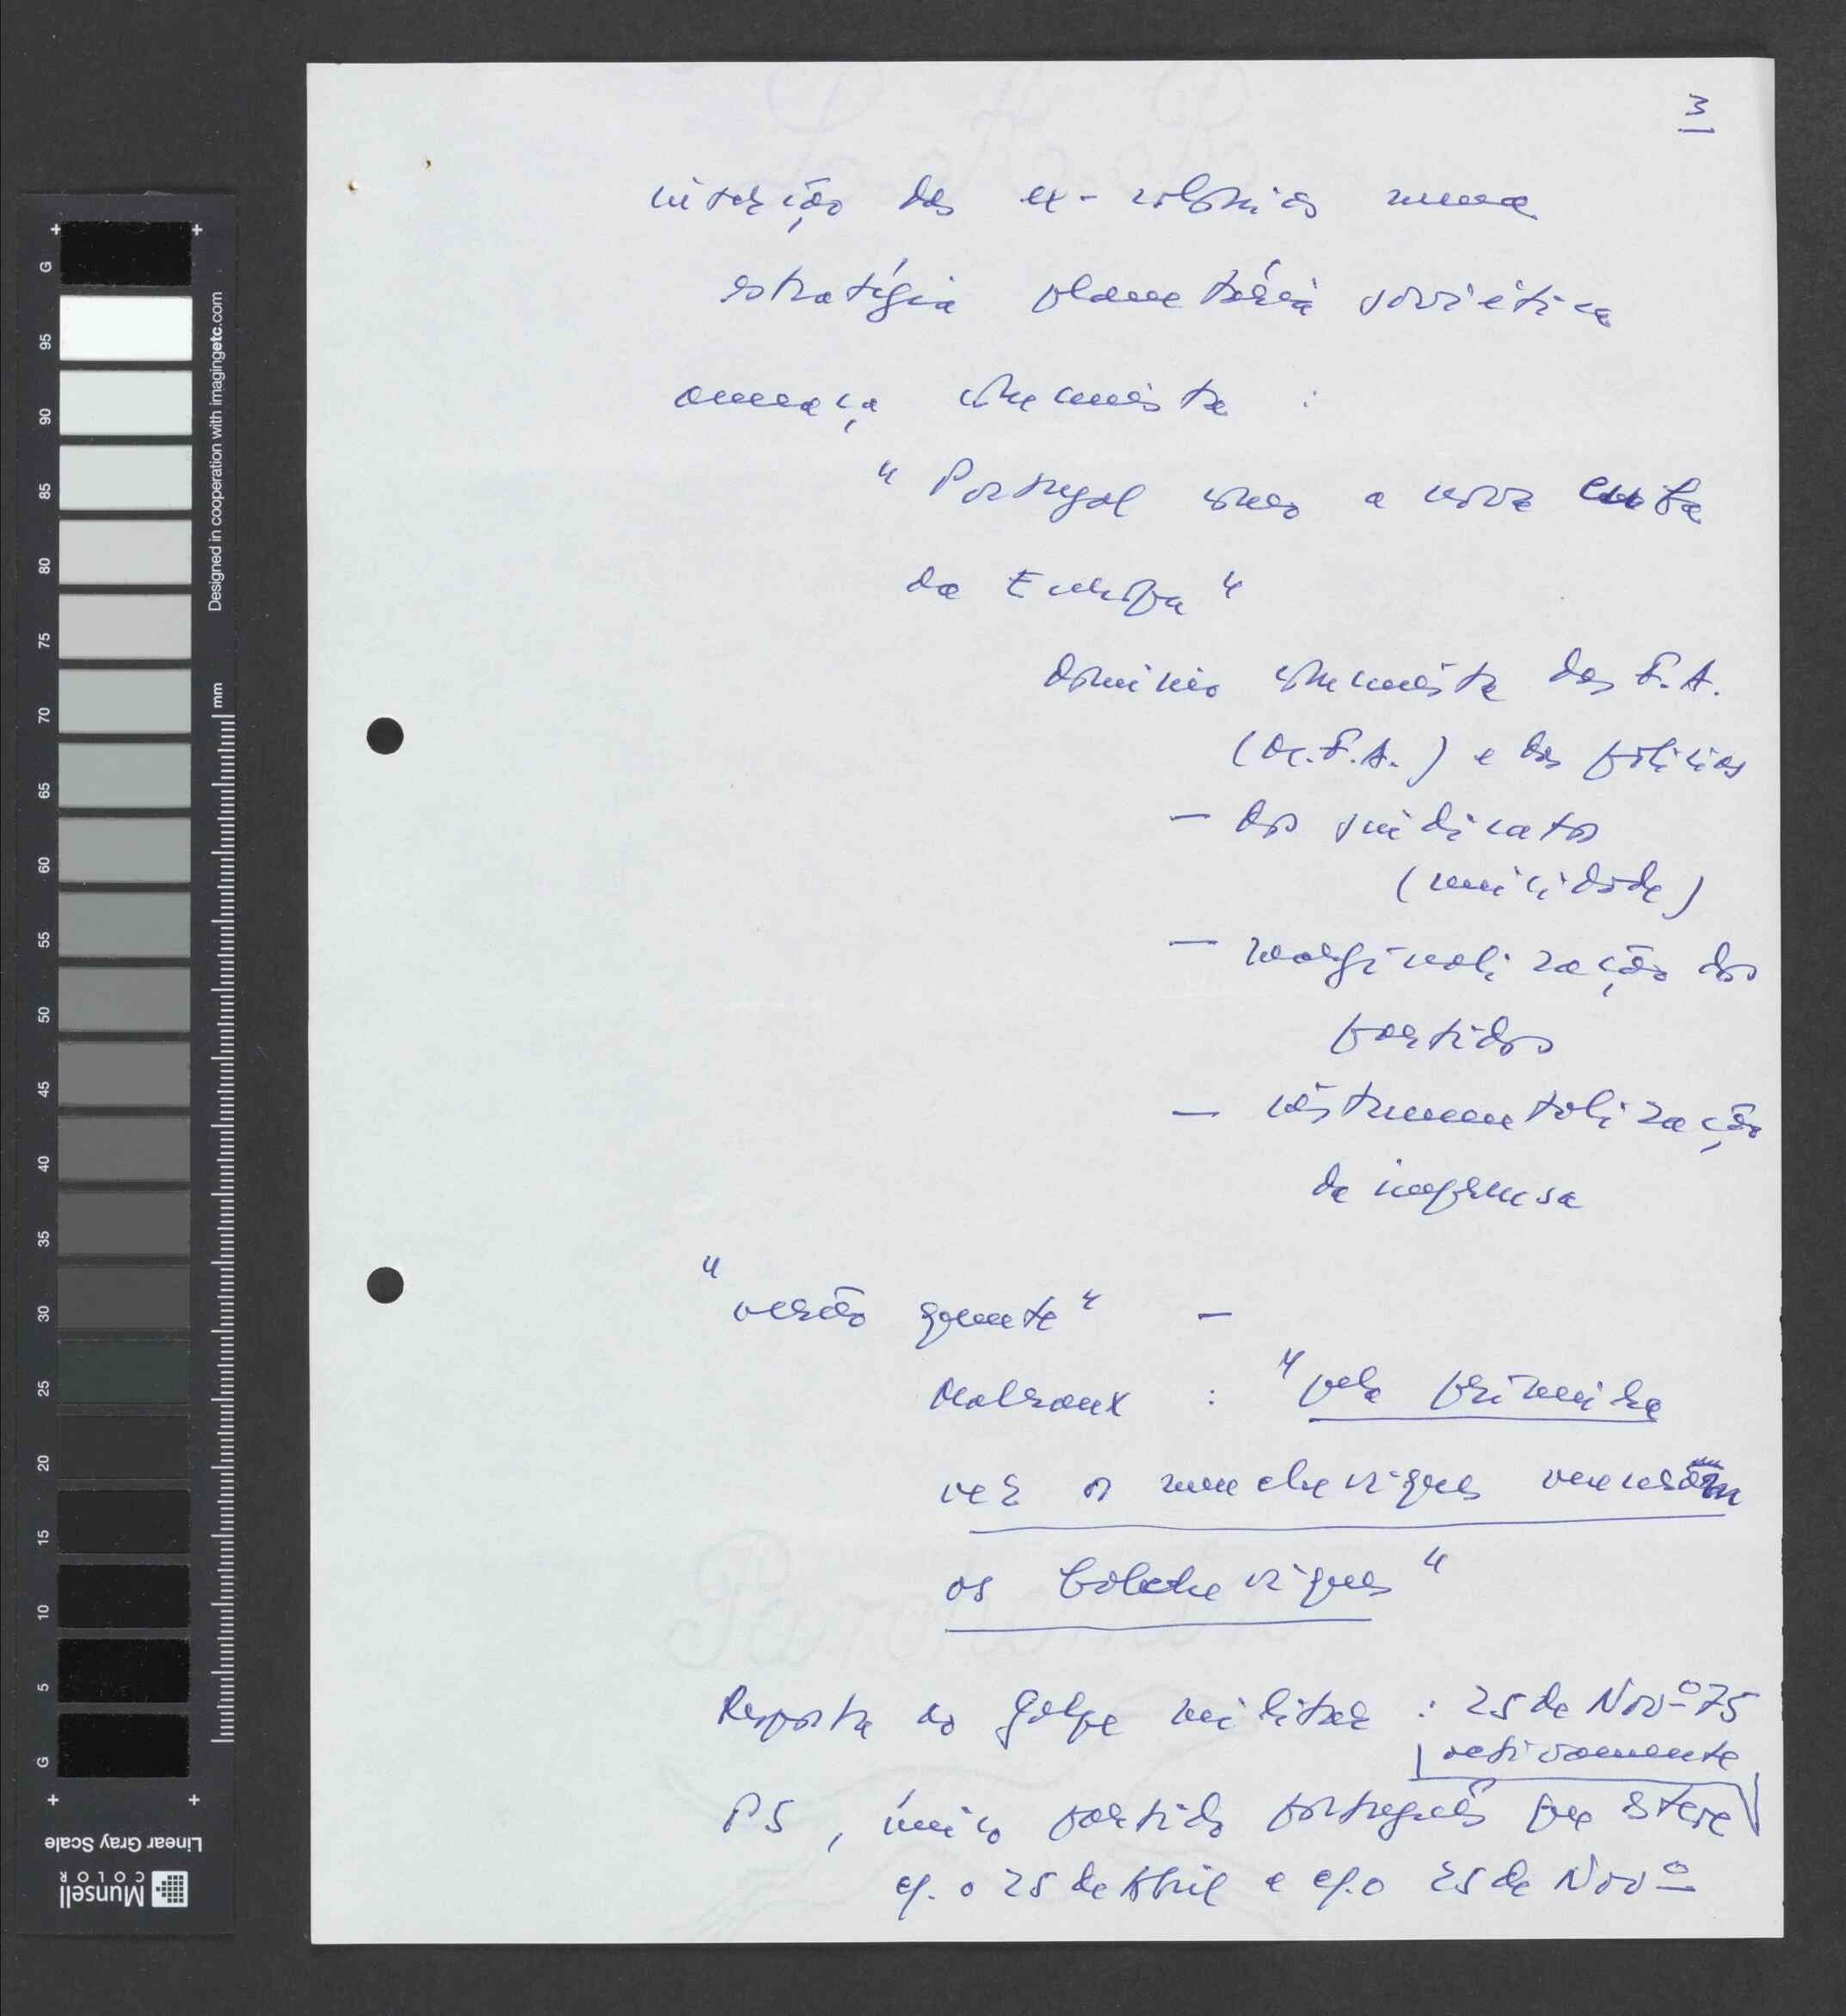 3
inserção das ex-colónias numa
estratégia planetária soviética
ameaça comunista :
"Portugal como a nova Cuba
da Europa"
domínio comunista das F.A.
(M.F.A.) e das polícias
— dos sindicatos
(unicidade)
— marginalização dos
partidos
— instrumentalização
da imprensa
"verão quente" —
Malraux : "pela primeira
vez os mencheviques venceram
os bolcheviques"
Resposta ao golpe militar : 25 de Novº 75
activamente
PS, único partido português que esteve
c/. o 25 de Abril e c/. o 25 de Novº
G
95
90
85
80
75
70
65
60
55
50
45
40
35
30
25
20
15
10
5
G
Designed in cooperation with imagingetc.com
mm
Linear Gray Scale
Munsell
COLOR